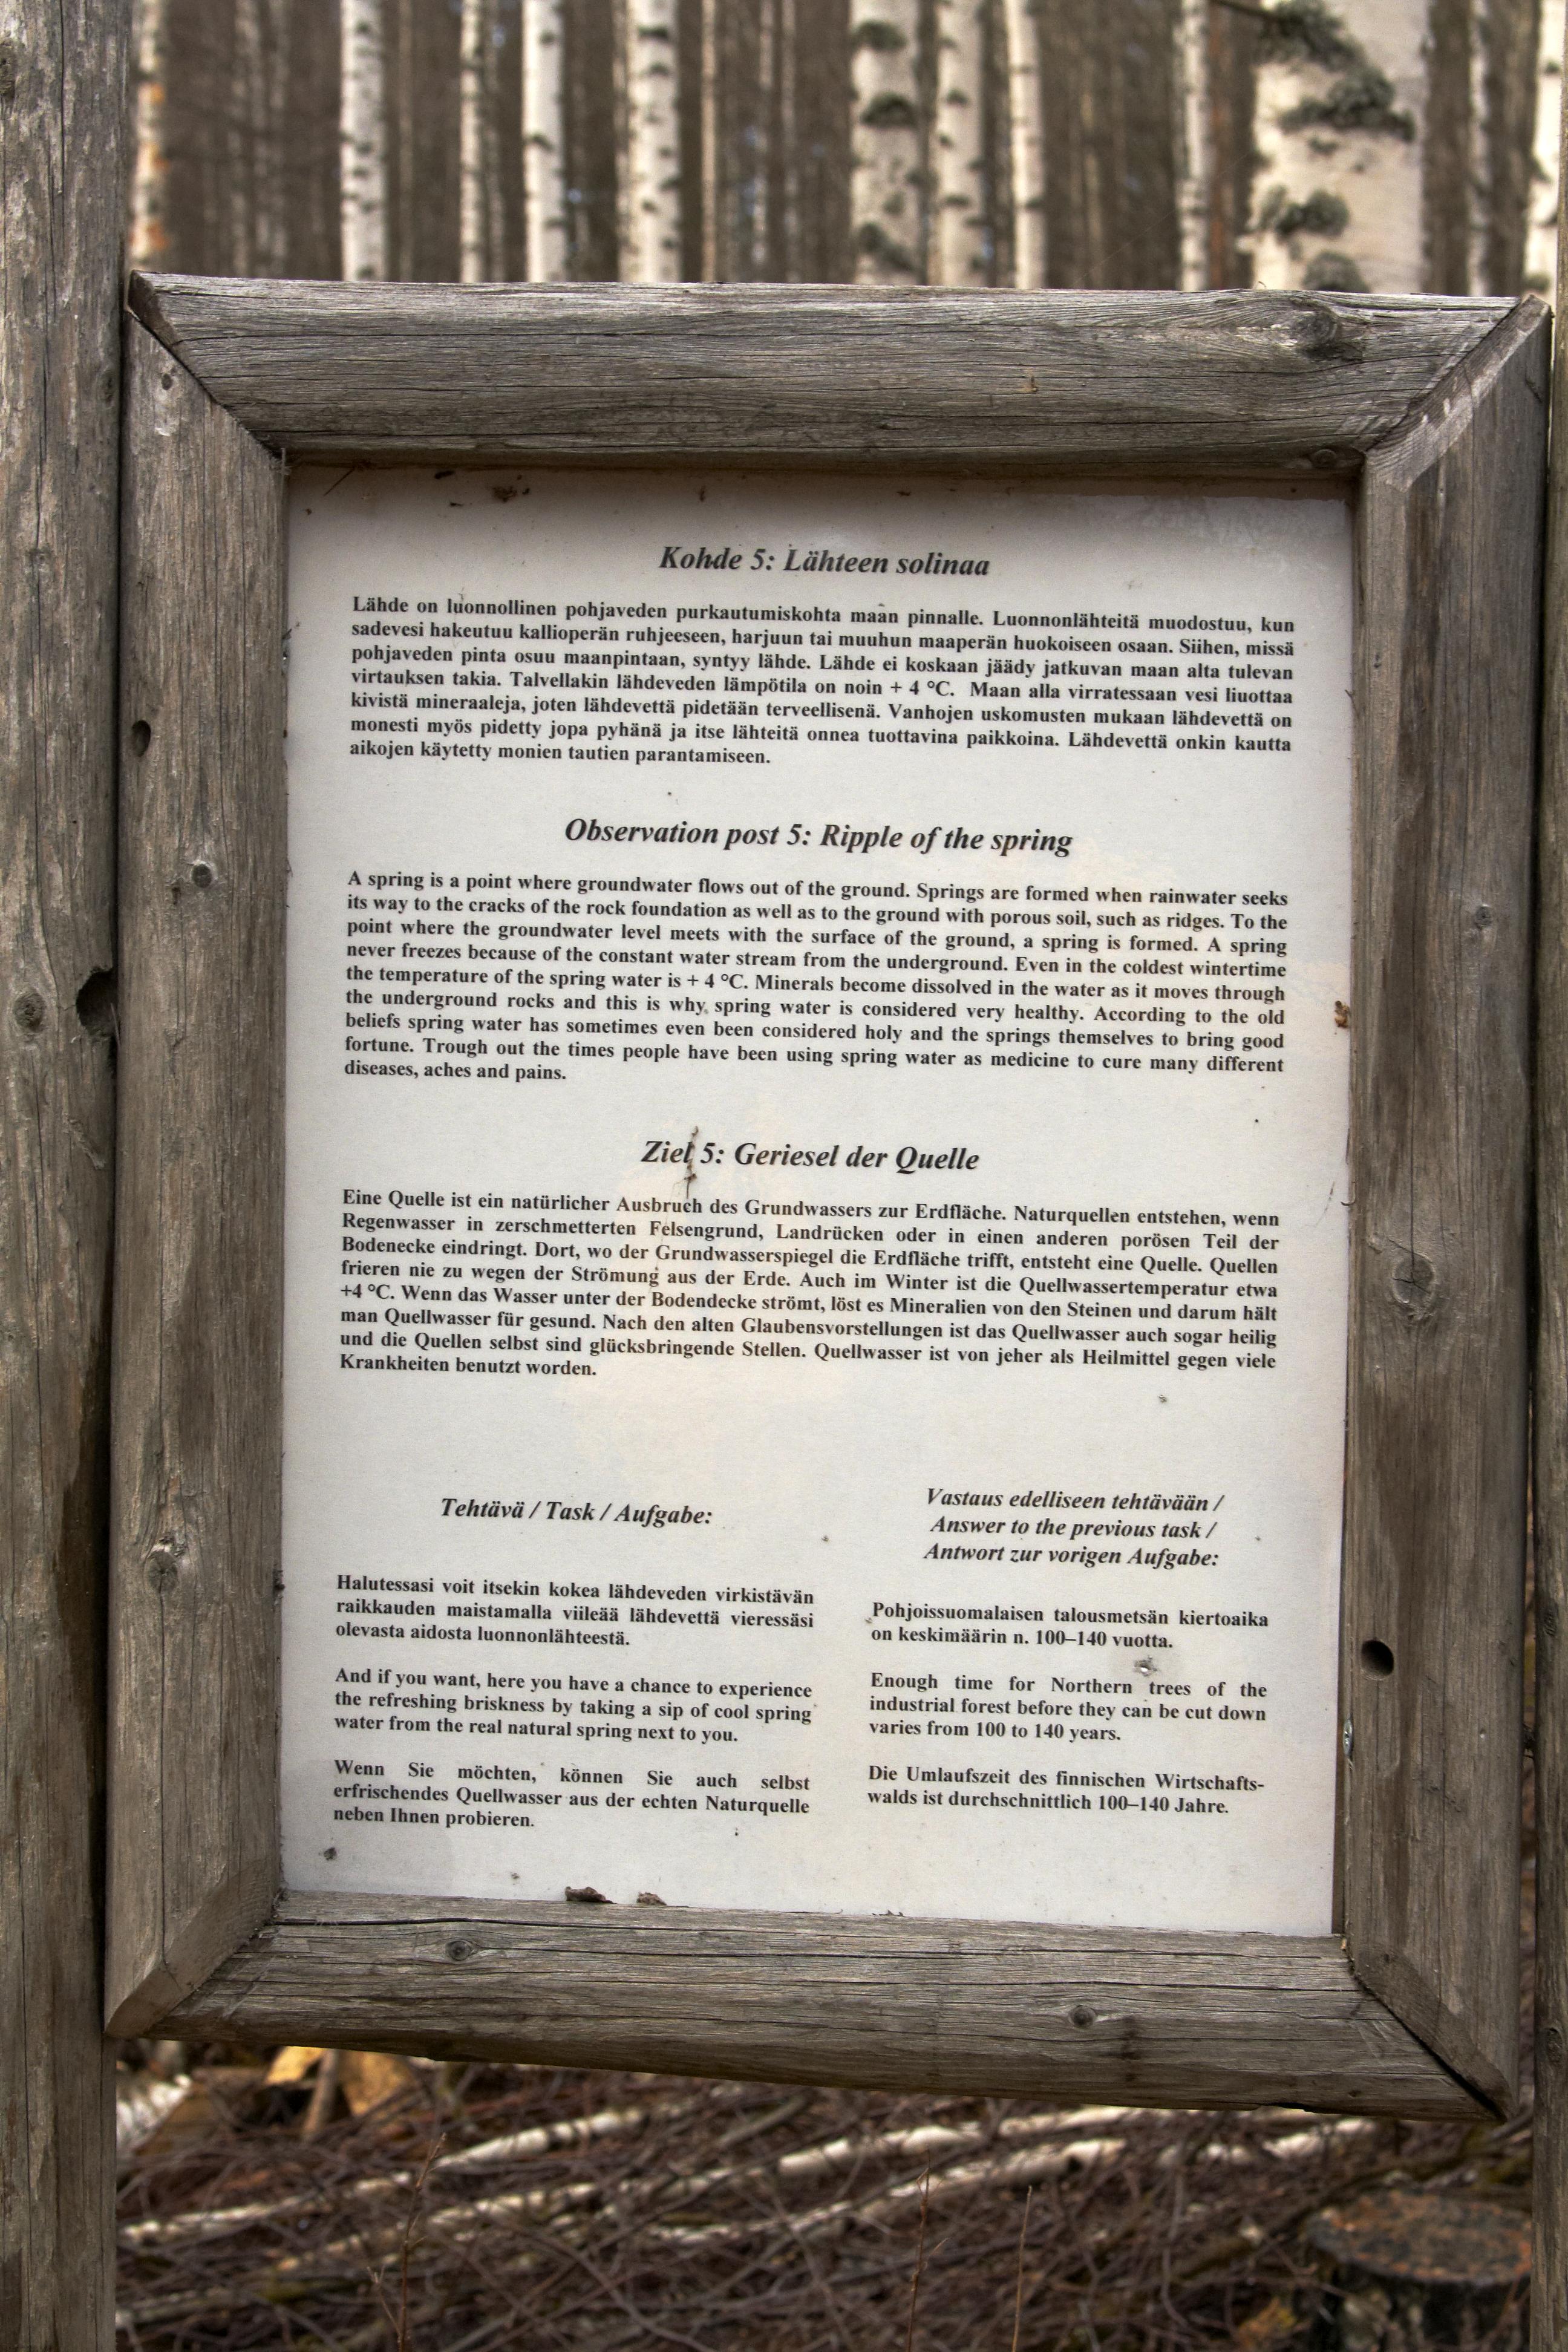 Kohde 5: Lähteen solinaa
Lähde on luonnollinen pohjaveden purkautumiskohta maan pinnalle. Luonnonlähteitä muodostuu, kun
sadevesi hakeutuu kallioperän ruhjeeseen, harjuun tai muuhun maaperän huokoiseen osaan. Siihen, missä
pohjaveden pinta osuu maanpintaan, syntyy lähde. Lähde ei koskaan jäädy jatkuvan maan alta tulevan
virtauksen takia. Talvellakin lähdeveden lämpötila on noin + 4 °C. Maan alla virratessaan vesi liuottaa
kivistä mineraaleja, joten lähdevettä pidetään terveellisenä. Vanhojen uskomusten mukaan lähdevettä on
monesti myös pidetty jopa pyhänä ja itse lähteitä onnea tuottavina paikkoina. Lähdevettä onkin kautta
aikojen käytetty monien tautien parantamiseen.
Observation post 5: Ripple of the spring
A spring is a point where groundwater flows out of the ground. Springs are formed when rainwater seeks
its way to the cracks of the rock foundation as well as to the ground with porous soil, such as ridges. To the
point where the groundwater level meets with the surface of the ground, a spring is formed. A spring
never freezes because of the constant water stream from the underground. Even in the coldest wintertime
the temperature of the spring water is + 4 °C. Minerals become dissolved in the water as it moves through
the underground rocks and this is why spring water is considered very healthy. According to the old
beliefs spring water has sometimes even been considered holy and the springs themselves to bring good
fortune. Trough out the times people have been using spring water as medicine to cure many different
diseases, aches and pains.
Ziel 5: Geriesel der Quelle
Eine Quelle ist ein natürlicher Ausbruch des Grundwassers zur Erdfläche. Naturquellen entstehen, wenn
Regenwasser in zerschmetterten Felsengrund, Landrücken oder in einen anderen porösen Teil der
Bodenecke eindringt. Dort, wo der Grundwasserspiegel die Erdfläche trifft, entsteht eine Quelle. Quellen
frieren nie zu wegen der Strömung aus der Erde. Auch im Winter ist die Quellwassertemperatur etwa
+4 °C. Wenn das Wasser unter der Bodendecke strömt, löst es Mineralien von den Steinen und darum hält
man Quellwasser für gesund. Nach den alten Glaubensvorstellungen ist das Quellwasser auch sogar heilig
und die Quellen selbst sind glücksbringende Stellen. Quellwasser ist von jeher als Heilmittel gegen viele
Krankheiten benutzt worden.
Tehtävä / Task / Aufgabe:
Halutessasi voit itsekin kokea lähdeveden virkistävän
raikkauden maistamalla viileää lähdevettä vieressäsi
olevasta aidosta luonnonlähteestä.
And if you want, here you have a chance to experience
the refreshing briskness by taking a sip of cool spring
water from the real natural spring next to you.
Wenn Sie möchten, können Sie auch selbst
erfrischendes Quellwasser aus der echten Naturquelle
neben Ihnen probieren.
Vastaus edelliseen tehtävään /
Answer to the previous task /
Antwort zur vorigen Aufgabe:
Pohjoissuomalaisen talousmetsän kiertoaika
on keskimäärin n. 100–140 vuotta.
Enough time for Northern trees of the
industrial forest before they can be cut down
varies from 100 to 140 years.
Die Umlaufszeit des finnischen Wirtschafts-
walds ist durchschnittlich 100–140 Jahre.